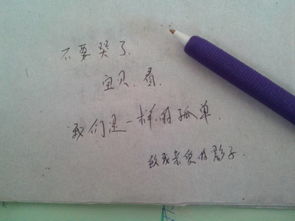 不要哭了
宝贝.看.
我们是一样的孤单.
致我亲爱的影子.